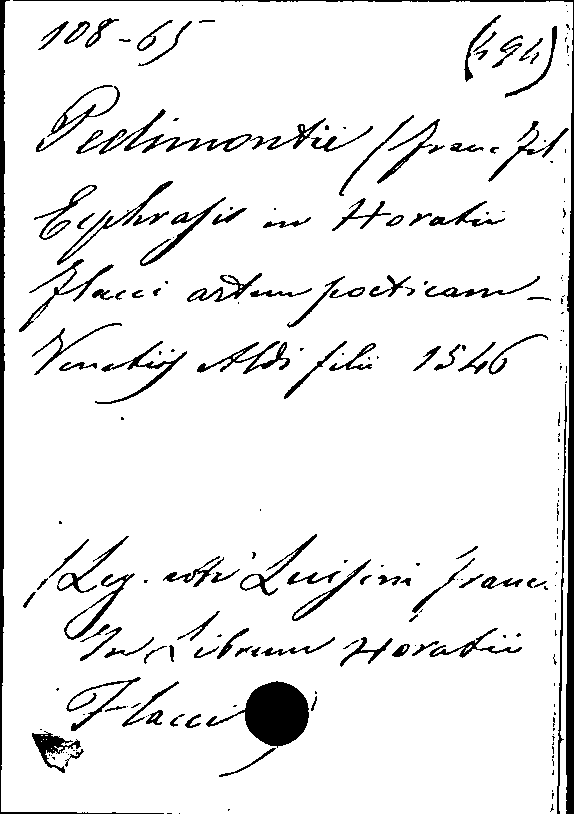 108-65 (494)
Pedimontii (Franc. Fil.
Ecphrasis in Horatii
Flacci artem poeticam -
Venetiis Aldi filii 1546
(Leg. con Luisini Franc.
In Librum Horatii
Flacci)